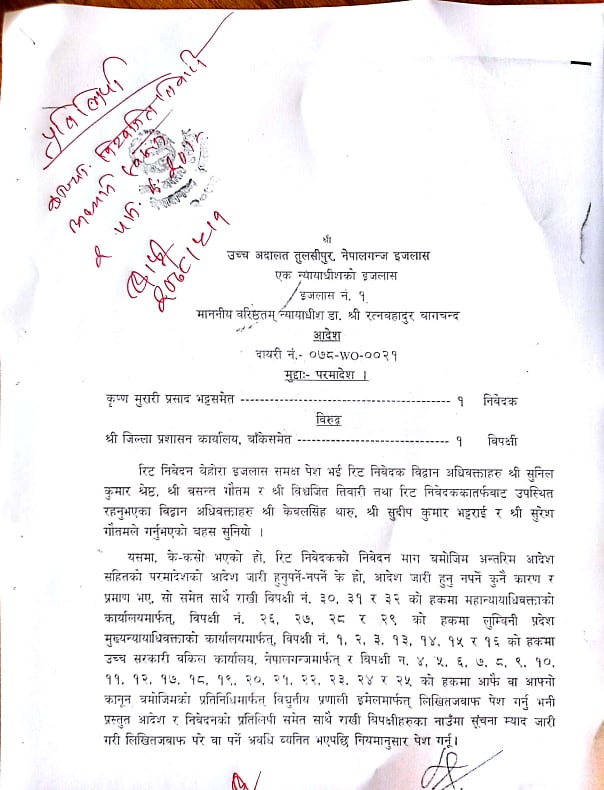 प्रतिलिपी
श्री
उच्च अदालत तुलसीपुर, नेपालगन्ज इजलास
एक न्यायाधीशको इजलास
इजलास नं. १
माननीय वरिष्ठतम् न्यायाधीश डा. श्री रत्नबहादुर बागचन्द
आदेश
दायरी नं.- ०७८-WO-००२१
मुद्दाः- परमादेश ।
कृष्ण मुरारी प्रसाद भट्टसमेत ---------------------------------------------- १ निवेदक
विरुद्ध
श्री जिल्ला प्रशासन कार्यालय, बाँकेसमेत --------------------------------- १ विपक्षी
रिट निवेदन येहोरा इजलास समक्ष पेश भई रिट निवेदक विद्वान अधिवक्ताहरु श्री सुनिल
कुमार श्रेष्ठ, श्री बसन्त गौतम र श्री विश्वजित तिवारी तथा रिट निवेदककातर्फबाट उपस्थित
रहनुभएका विद्वान अधिवक्ताहरु श्री केवलसिंह थारु, श्री सुदीप कुमार भट्टराई र श्री सुरेश
गौतमले गर्नुभएको बहस सुनियो ।
यसमा, के-कसो भएको हो, रिट निवेदकको निवेदन माग बमोजिम अन्तरिम आदेश
सहितको परमादेशको आदेश जारी हुनुपर्ने-नपर्ने के हो, आदेश जारी हुनु नपर्ने कुनै कारण र
प्रमाण भए, सो समेत साथै राखी विपक्षी नं. ३०, ३१ र ३२ को हकमा महान्यायाधिवक्ताको
कार्यालयमार्फत्, विपक्षी नं. २६, २७, २८ र २९ को हकमा लुम्विनी प्रदेश
मुख्यन्यायाधिवक्ताको कार्यालयमार्फत्, विपक्षी नं. १, २, ३, १३, १४, १५ र १६ को हकमा
उच्च सरकारी वकिल कार्यालय, नेपालगन्जमार्फत् र विपक्षी न. ४, ५, ६, ७, ८, ९, १०,
११, १२, १७, १८, १९, २०, २१, २२, २३, २४ र २५ को हकमा आफै वा आफ्नो
कानून बमोजिमको प्रतिनिधिमार्फत् विद्युतीय प्रणाली इमेलमार्फत् लिखितजवाफ पेश गर्नु भनी
प्रस्तुत आदेश र निवेदनको प्रतिलिपी समेत साथै राखी विपक्षीहरुका नाउँमा सूचना म्याद जारी
गरी लिखितजवाफ परे वा पर्ने अवधि व्यतित भएपछि नियमानुसार पेश गर्नू।